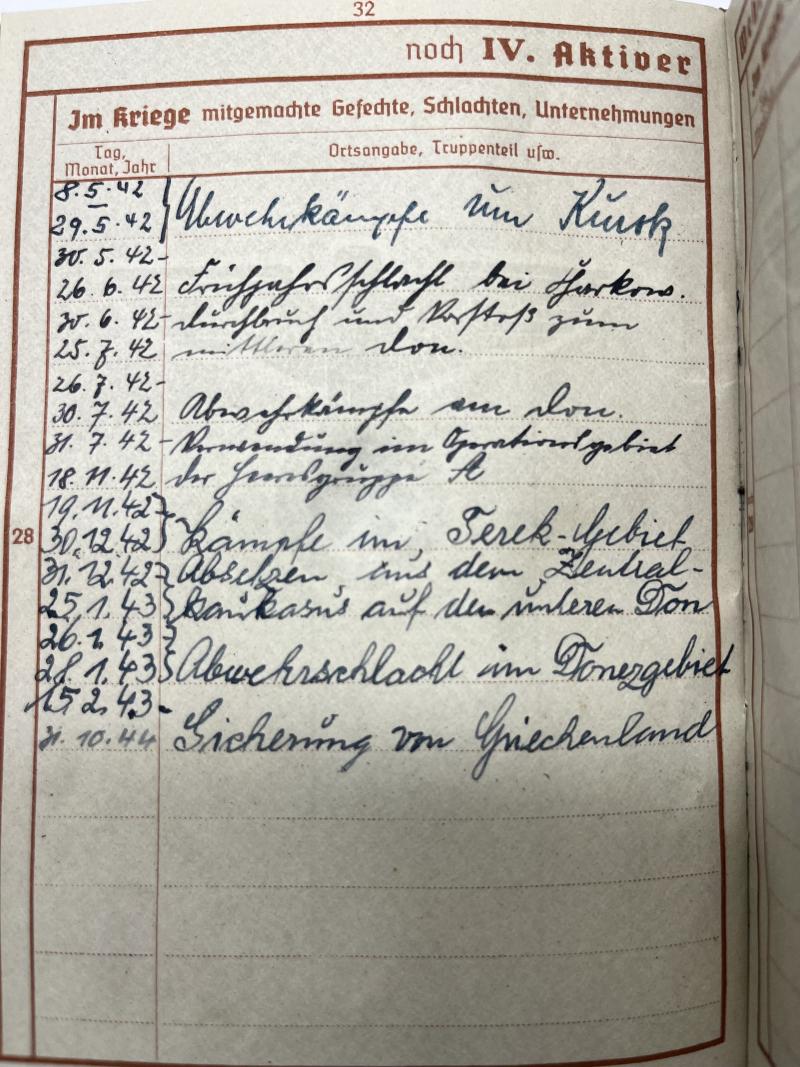 32
noch IV. Aktiver
Im Kriege mitgemachte Gefechte, Schlachten, Unternehmungen
Tag, Monat, Jahr
Ortsangabe, Truppenteil usw.
8.5.42
29.5.42 Abwehrkämpfe um Kursk
30.5.42-
26.6.42 Frühjahrsschlacht bei Charkow.
30.6.42- Durchbruch und Vorstoß zum
25.7.42 mittleren Don.
26.7.42-
30.7.42 Abwehrkämpfe am Don.
31.7.42- Verwendung im Operationsgebiet
18.11.42 der Heeresgruppe A
19.11.42-
28
30.12.42 Kämpfe im Terek-Gebiet
31.12.42- Absetzen aus dem Zentral-
25.1.43 kaukasus auf den unteren Don
26.1.43
28.1.43 Abwehrschlacht im Donezgebiet
15.2.43-
31.10.44 Sicherung von Griechenland